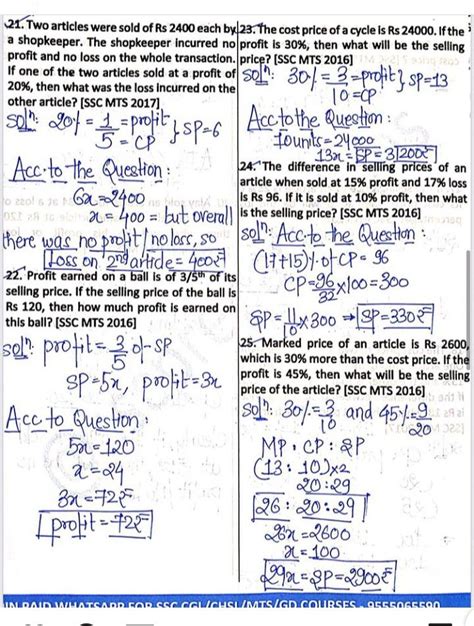 21. Two articles were sold of Rs 2400 each by
a shopkeeper. The shopkeeper incurred no
profit and no loss on the whole transaction.
If one of the two articles sold at a profit of
20%, then what was the loss incurred on the
other article? [SSC MTS 2017]
Solⁿ: 20% = 1/5 = profit/CP } SP=6
Acc. to the Question:
6x=2400
x = 400 = but overall
there was no profit/no loss, so
Loss on 2nd article = 400₹
22. Profit earned on a ball is of 3/5th of its
selling price. If the selling price of the ball is
Rs 120, then how much profit is earned on
this ball? [SSC MTS 2016]
Solⁿ: profit = 3/5 of SP
SP=5x, profit=3x
Acc. to Question:
5x=120
x=24
3x=72₹
profit=72₹
23. The cost price of a cycle is Rs 24000. If the
profit is 30%, then what will be the selling
price? [SSC MTS 2016]
Solⁿ: 30% = 3/10 = profit/CP } SP=13
Acc to the Question:
10units=24000
13x = SP = 31200₹
24. The difference in selling prices of an
article when sold at 15% profit and 17% loss
is Rs 96. If it is sold at 10% profit, then what
is the selling price? [SSC MTS 2016]
Solⁿ: Acc. to the Question:
(17+15)% of CP = 96
CP=96/32×100=300
SP=11/10×300 → SP=330₹
25. Marked price of an article is Rs 2600,
which is 30% more than the cost price. If the
profit is 45%, then what will be the selling
price of the article? [SSC MTS 2016]
Solⁿ: 30%=3/10 and 45%=9/20
MP : CP : SP
(13 : 10)×2
20:29
26 : 20 : 29
26x=2600
x=100
29x=SP=2900₹
IN PAID WHATSAPP FOR SSC CGL/CHSL/MTS/GD COURSES - 9555065590